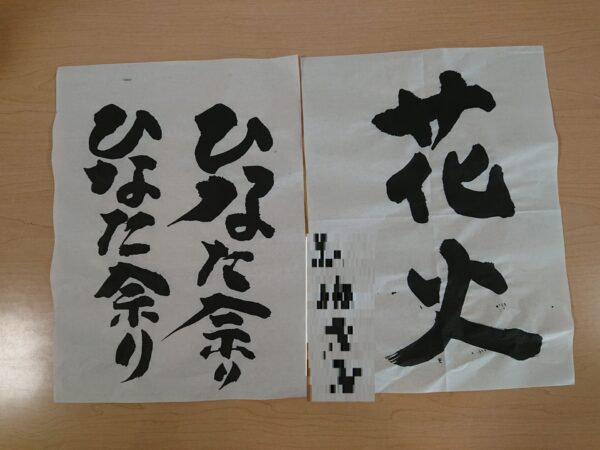 花火
ひなた祭り
ひなた祭り